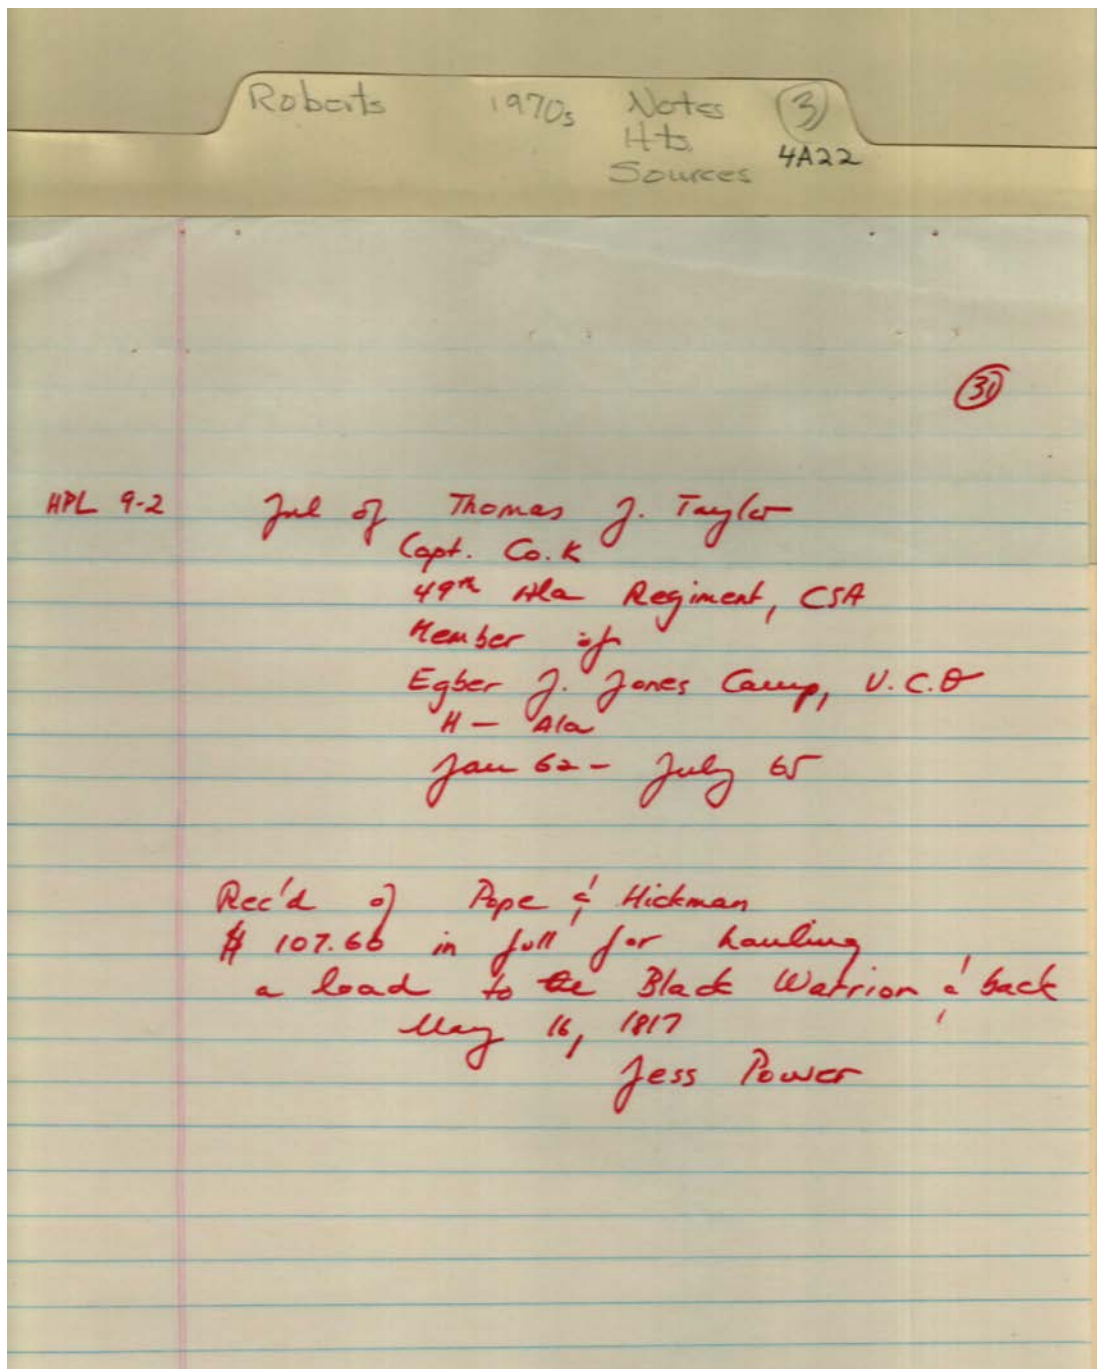 Roberts 1970s Notes 3
Hts.
Sources 4A22
31
HPL 9-2 Jnl of Thomas J. Taylor
Capt. Co. K
49th Ala Regiment, CSA
Member of
Egber J. Jones Camp, U.C.
H — Ala
Jan 62 - July 65
Rec'd of Pope & Hickman
$ 107.66 in full for hauling
a load to the Black Warrion & back
May 16, 1817
Jess Power